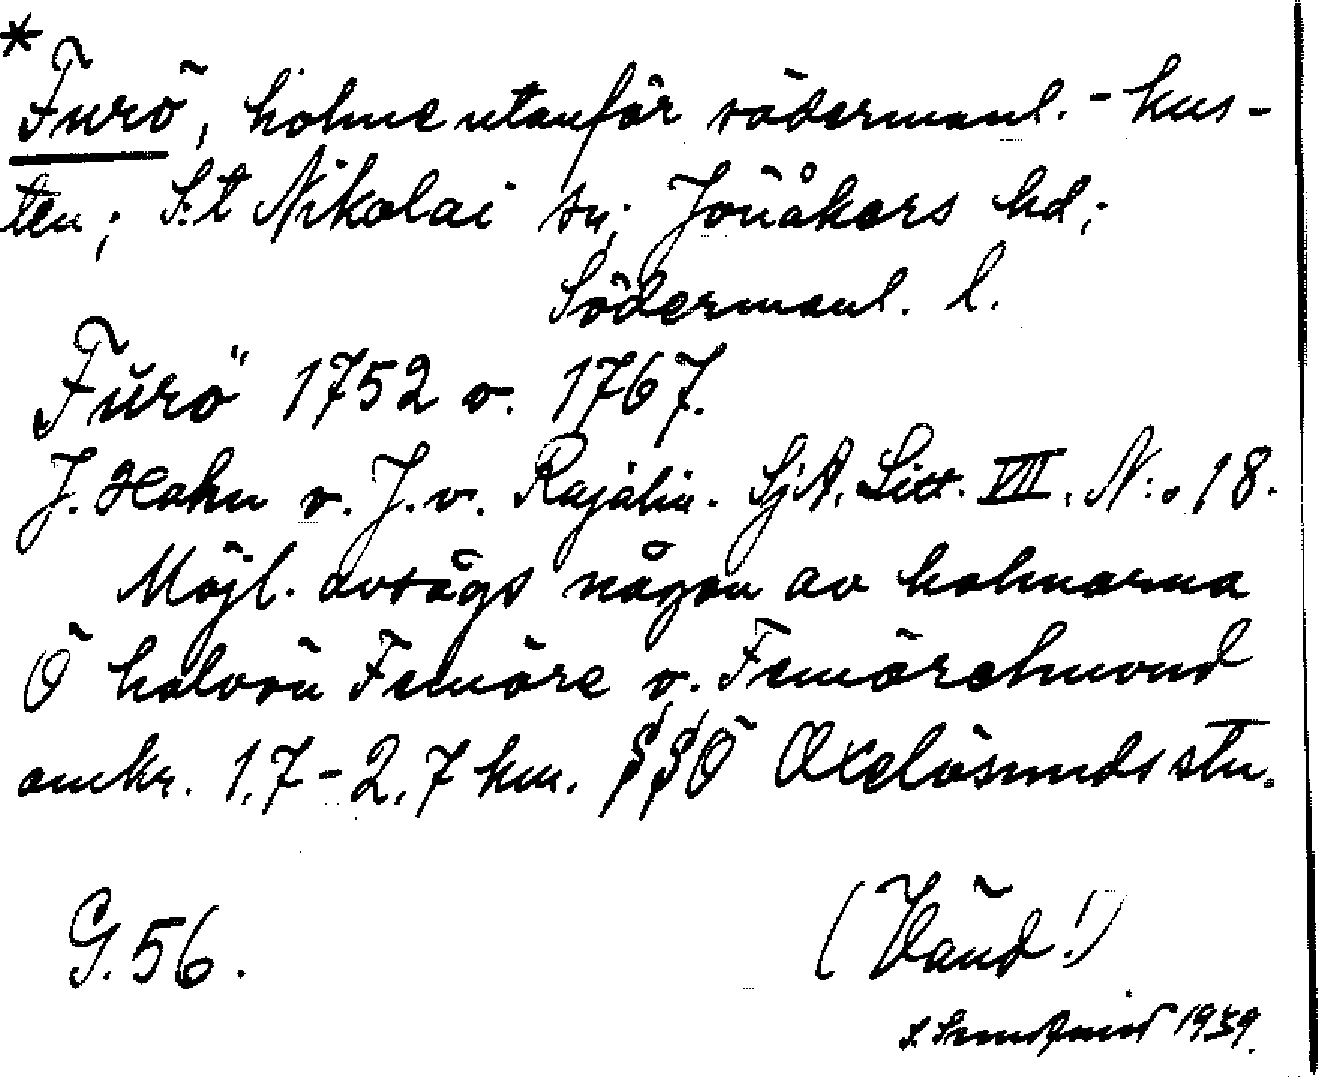 *
Furö, holme utanför södermanl.-kus-
ten; S:t Nikolai sn; Jönåkers hd;
Södermanl. l.
Furö" 1752 o. 1767.
J. Hahn o. J. v. Rajalin. SjA. Litt. VIII. N:o 18.
Möjl. avsågs någon av holmarna
Ö halvön Femöre o. Femörehuvud
omkr. 1,7-2,7 km. SSÖ Oxelösunds stn.
G. 56.
(Vänd!)
1939.